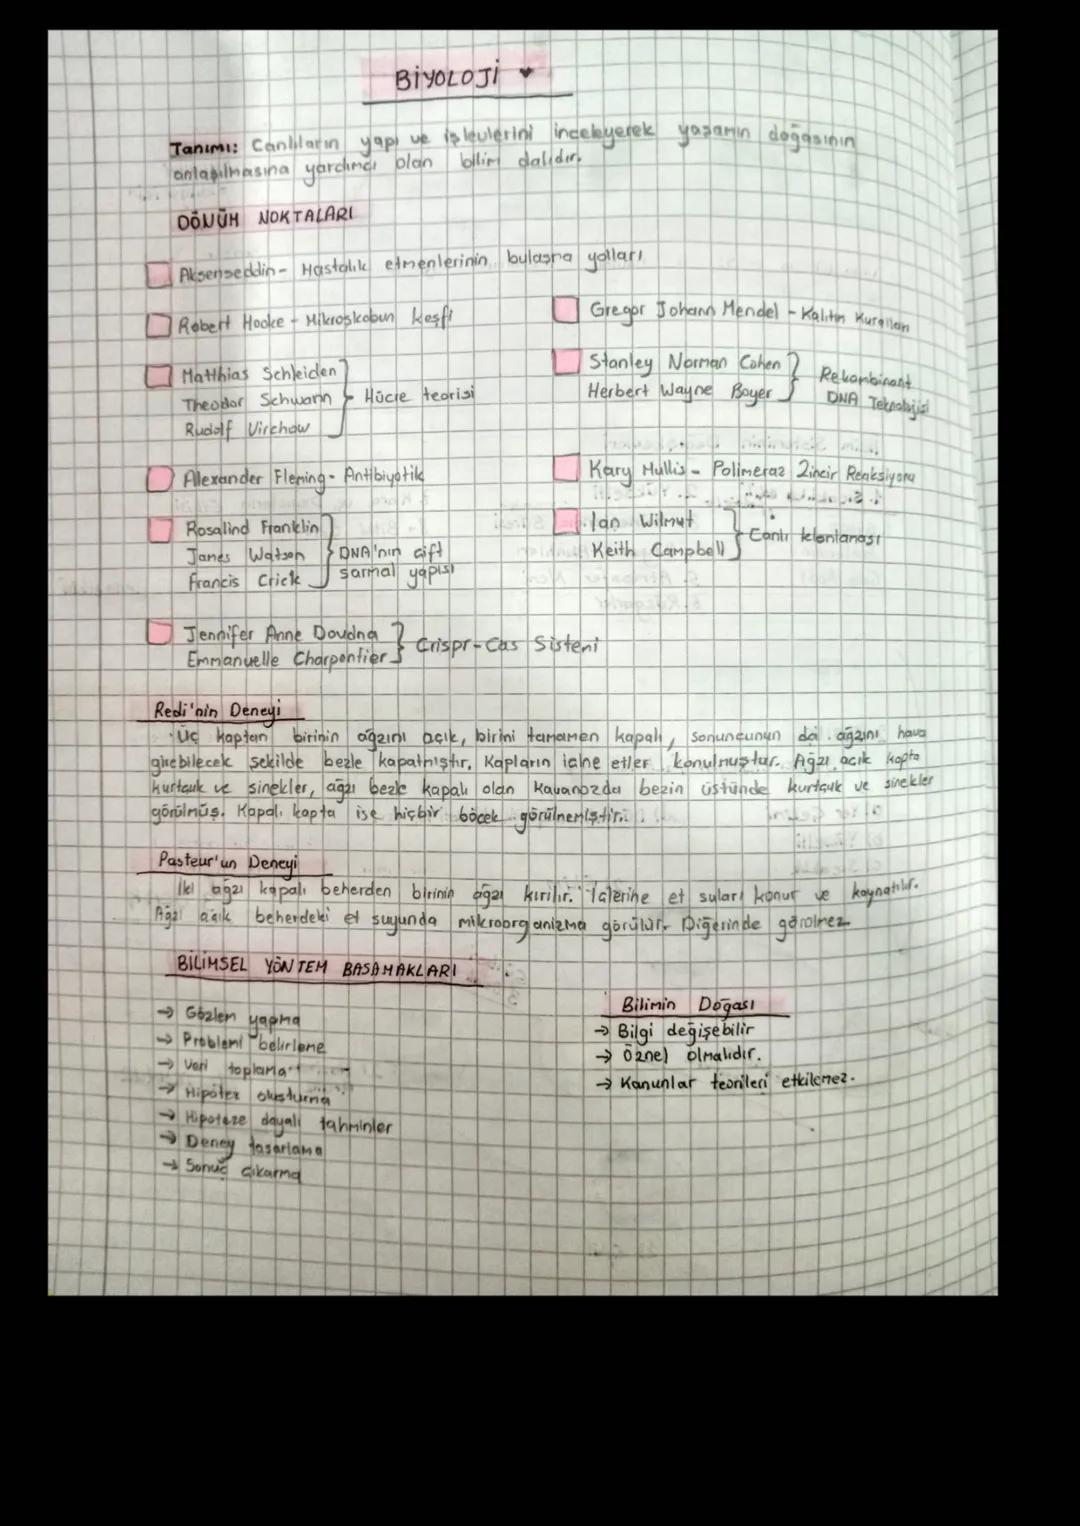 BİYOLOJİ
Tanımı: Canlıların yapı ve işlevlerini inceleyerek yaşamın doğasının
anlaşılmasına yardımcı olan bilim dalıdır.
DÖNÜM NOKTALARI
Akşemseddin - Hastalık etmenlerinin bulaşma yolları
Robert Hooke - Mikroskobun keşfi
Gregor Johann Mendel - Kalıtım Kuralları
Matthias Schleiden
Theodor Schwann
Rudolf Virchow
Hücre teorisi
Stanley Norman Cohen
Herbert Wayne Boyer
Rekombinant
DNA Teknolojisi
Alexander Fleming - Antibiyotik
Kary Mullis - Polimeraz Zincir Reaksiyonu
Rosalind Franklin
James Watson
Francis Crick
DNA'nın çift
sarmal yapısı
Ian Wilmut
Keith Campbell
Canlı klonlaması
Jennifer Anne Doudna
Emmanuelle Charpentier
Crispr-Cas Sistemi
Redi'nin Deneyi
Üç kaptan birinin ağzını açık, birini tamamen kapalı, sonuncunun da ağzını hava
girebilecek şekilde bezle kapatmıştır. Kapların içine etler konulmuştur. Ağzı açık kapta
kurtçuk ve sinekler, ağzı bezle kapalı olan kavanozda bezin üstünde kurtçuk ve sinekler
görülmüş. Kapalı kapta ise hiçbir böcek görülmemiştir.
Pasteur'un Deneyi
İki ağzı kapalı beherden birinin ağzı kırılır. İçlerine et suları konur ve kaynatılır.
Ağzı açık beherdeki et suyunda mikroorganizma görülür. Diğerinde görülmez
BİLİMSEL YÖNTEM BASAMAKLARI
→ Gözlem yapma
→ Problemi belirleme
→ Veri toplama
→ Hipotez oluşturma
→ Hipoteze dayalı tahminler
→ Deney tasarlama
→ Sonuç çıkarma
Bilimin Doğası
→ Bilgi değişebilir
→ Öznel olmalıdır.
→ Kanunlar teorileri etkilemez.